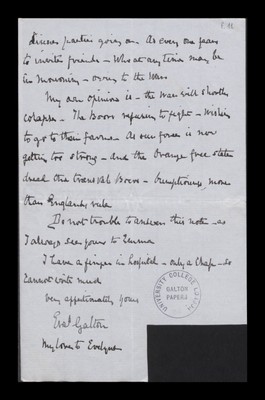 dinner parties going on. As every one fears
to invite friends – Who at any time may be
in Mourning – owing to the War.
My own opinion is – the War will shortly
collapse – The Boers refusing to fight – wishing
to go to their farms. As our force is now
getting too strong – and the Orange free state
dread the transvaal Boers – Oumphouse more
than England's rule
Do not trouble to answer this note – as
I always see yours to Emma
I have a finger in hospital – only a Chap – so
cannot write much
Very affectionately yours
Eva? Galton
My love to Evelyne
UNIVERSITY COLLEGE LONDON
GALTON
PAPERS